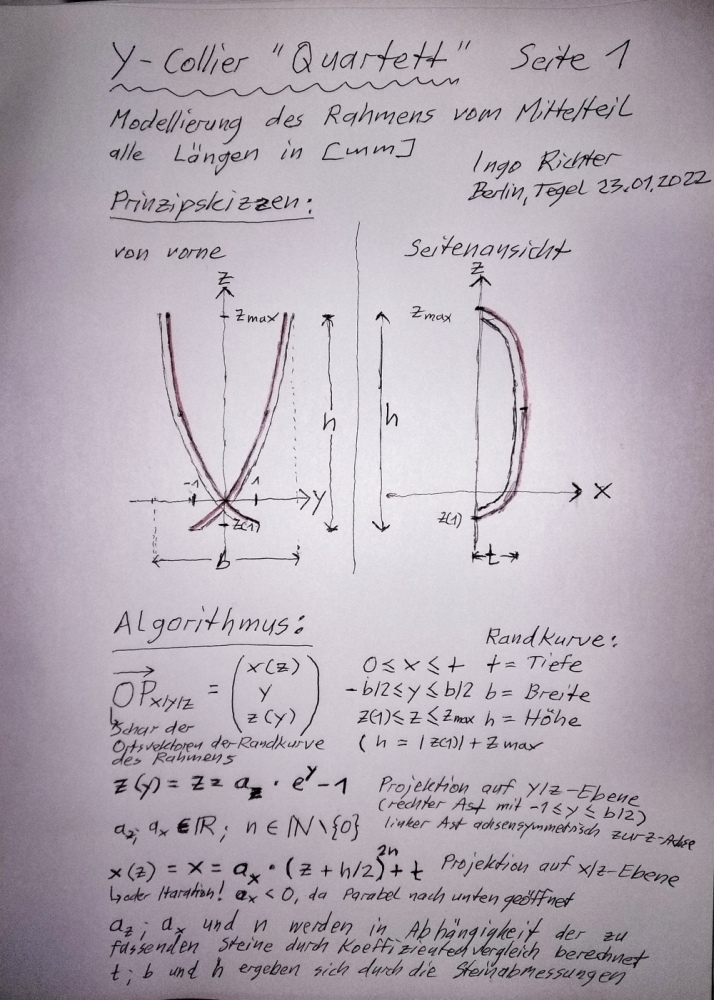 Y-Collier "Quartett" Seite 1
Modellierung des Rahmens vom Mittelteil
alle Längen in [mm]
Ingo Richter
Berlin, Tegel 23.01.2022
Prinzipskizzen:
von vorne
Seitenansicht
z
z
zmax
zmax
h
h
-1
1
y
x
z(1)
z(1)
b
t
Algorithmus:
Randkurve:
OPx/y/z = (x(z) y z(y))
0 ≤ x ≤ t t = Tiefe
-b/2 ≤ y ≤ b/2 b = Breite
z(1) ≤ z ≤ zmax h = Höhe
(h = |z(1)| + zmax
Schar der
Ortsvektoren der Randkurve
des Rahmens
z(y) = z = az · e^y - 1 Projektion auf y/z-Ebene
(rechter Ast mit -1 ≤ y ≤ b/2)
az; ax ∈ ℝ; n ∈ ℕ\{0} linker Ast achsensymmetrisch zur z-Achse
x(z) = x = ax · (z + h/2)^2n + t Projektion auf x/z-Ebene
↳oder Itaration! ax < 0, da Parabel nach unten geöffnet
az; ax und n werden in Abhängigkeit der zu
fassenden Steine durch Koeffizientenvergleich berechnet
t; b und h ergeben sich durch die Steinabmessungen